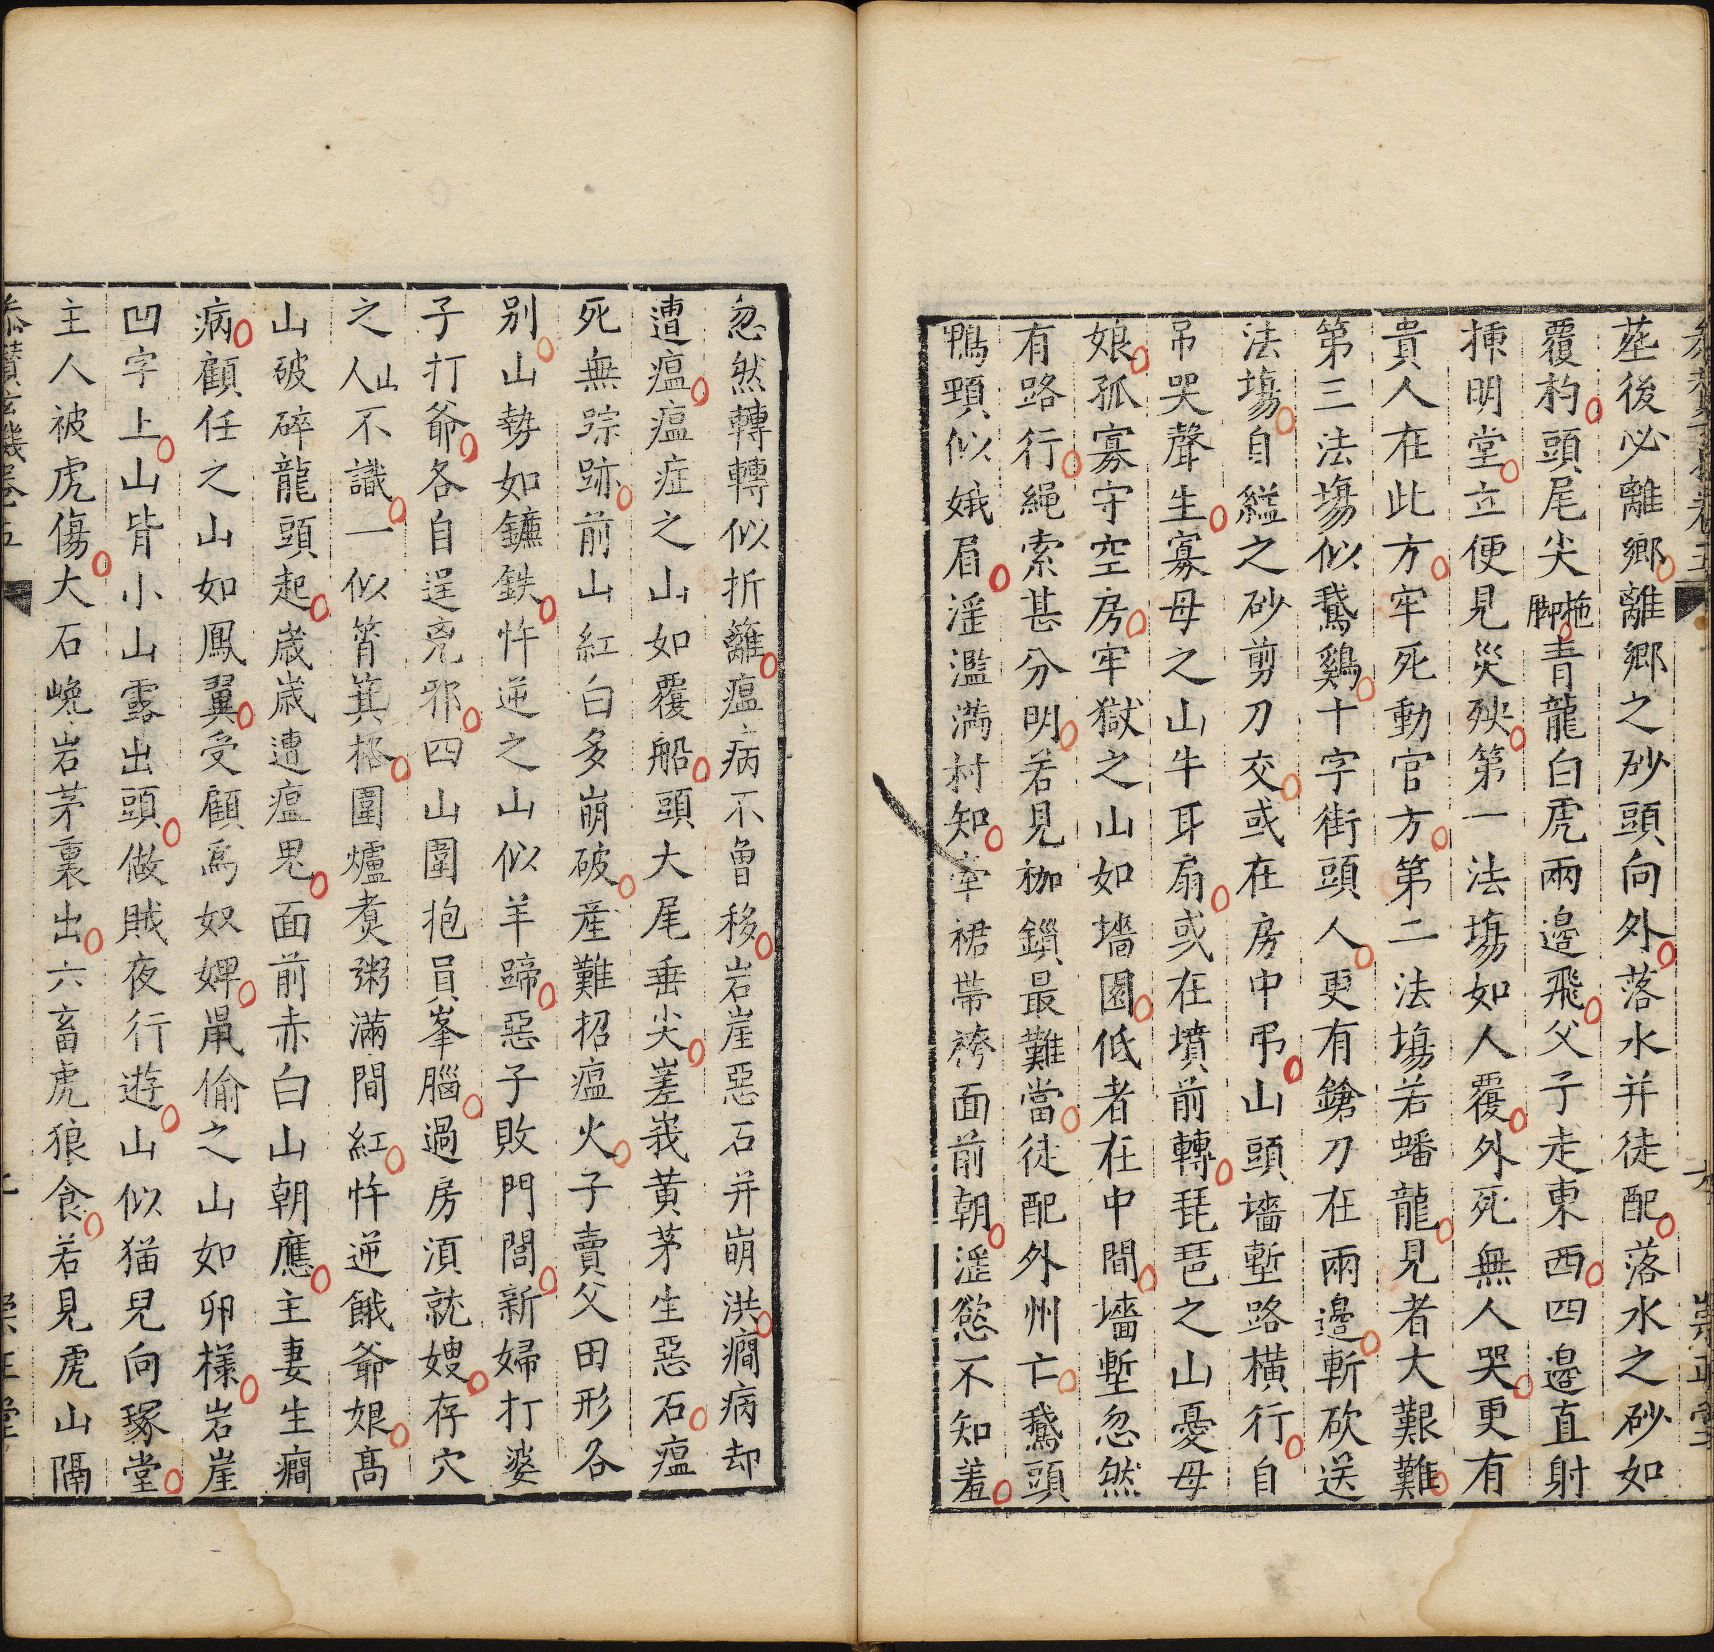 塟後必離鄉離鄉之砂頭向外落水并徒配落水之砂如
覆杓頭尾尖拖脚青龍白虎兩邉飛父子走東西四邉直射
揷明堂立便見災殃第一法塲如人覆外死無人哭更有
貴人在此方牢死動官方第二法塲若蟠龍見者大艱難
第三法塲似鵞鷄十字街頭人更有鎗刀在兩邉斬砍送
法塲自縊之砂剪刀交或在房中弔山頭墻塹路橫行自
吊哭聲生寡母之山牛耳扇或在墳前轉琵琶之山憂母
娘孤寡守空房牢獄之山如墻園低者在中間墻塹忽然
有路行繩索甚分明若見枷鎖最難當徒配外州亡鵞頭
鴨頸似娥眉滛濫滿村知牽裙帶袴面前朝滛慾不知羞
忽然轉轉似折籬瘟病不曾移岩崖惡石并崩洪癆病却
遭瘟瘟症之山如覆船頭大尾垂尖崖峩黄茅生惡石瘟
死無踪跡前山紅白多崩破産難招瘟火子賣父田形各
别山勢如鐮鉄忤逆之山似羊蹄惡子敗門閭新婦打婆
子打爺各自逞兇邪四山圍抱員峯腦過房湏就嫂存穴
之人山不識一似筲箕樣圍爐煑粥滿間紅忤逆餓爺娘髙
山破碎龍頭起歳歳遭瘟鬼面前赤白山朝應主妻生癆
病顧任之山如鳳翼受顧爲奴婢鼠偷之山如卯様岩崖
凹字上山背小山露出頭做賊夜行遊山似猫兒向琢堂
主人被虎傷大石巉岩茅裏出六畜虎狼食若見虎山隔
卷五
崇正堂